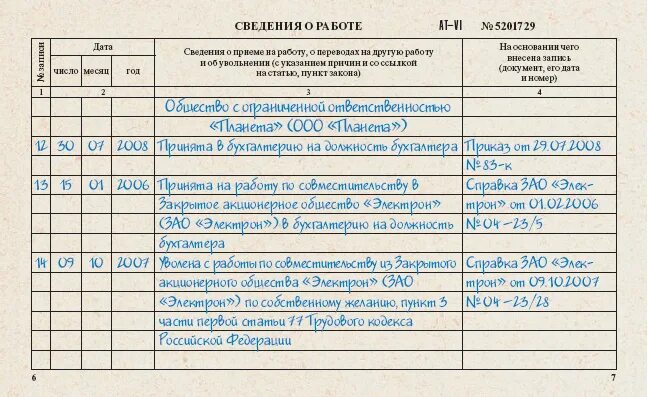 СВЕДЕНИЯ О РАБОТЕ АТ-VI № 5201729
№ записи
Дата
Сведения о приеме на работу, о переводах на другую работу
и об увольнении (с указанием причин и со ссылкой
на статью, пункт закона)
На основании чего
внесена запись
(документ, его дата
и номер)
число месяц год
1 2 3 4
Общество с ограниченной ответственностью
«Планета» (ООО «Планета»)
12 30 07 2008 Принята в бухгалтерию на должность бухгалтера Приказ от 29.07.2008
№ 83-к
13 15 01 2006 Принята на работу по совместительству в Справка ЗАО «Элек-
Закрытое акционерное общество «Электрон» трон» от 01.02.2006
(ЗАО «Электрон») в бухгалтерию на должность № 04-23/5
бухгалтера
14 09 10 2007 Уволена с работы по совместительству из Закрытого Справка ЗАО «Элек-
акционерного общества «Электрон» (ЗАО трон» от 09.10.2007
«Электрон») по собственному желанию, пункт 3 № 04-23/28
части первой статьи 77 Трудового кодекса
Российской Федерации
6 7